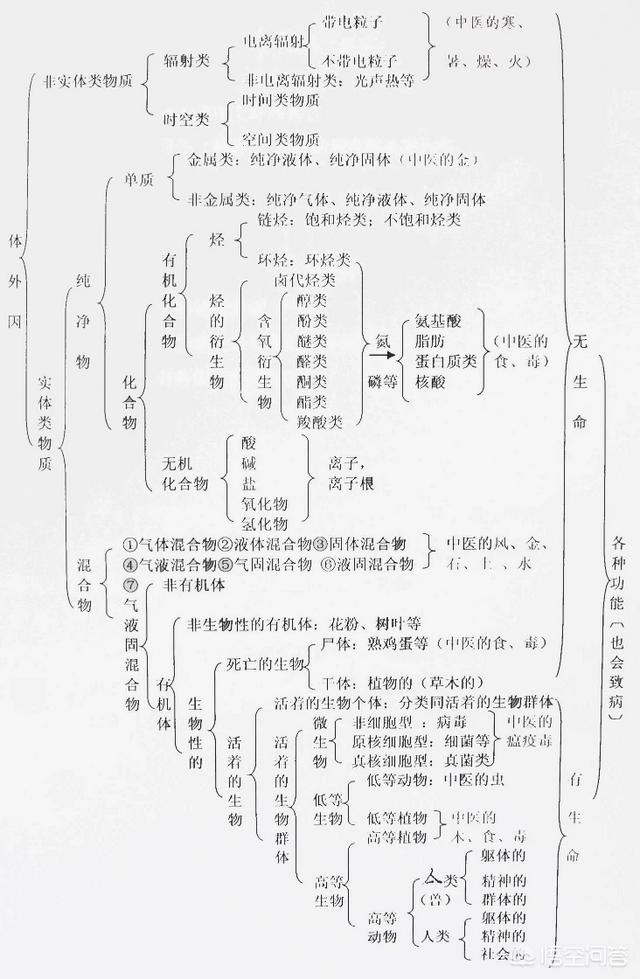 带电粒子
(中医的寒、
电离辐射
辐射类
不带电粒子
暑、燥、火)
非实体类物质
非电离辐射类：光声热等
时间类物质
时空类
空间类物质
金属类：纯净液体、纯净固体(中医的金)
单质
非金属类：纯净气体、纯净液体、纯净固体
链烃：饱和烃类；不饱和烃类
烃
环烃：环烃类
体外因
纯净物
有机化合物
卤代烃类
烃的衍生物
含氧衍生物
醇类
酚类
醚类
醛类
酮类
酯类
羧酸类
氮
磷等
氨基酸
脂肪
蛋白质类
核酸
(中医的
食、毒)
无生命
实体类物质
化合物
无机
化合物
酸
碱
盐
氧化物
氢化物
离子，
离子根
混合物
①气体混合物②液体混合物③固体混合物
④气液混合物⑤气固混合物 ⑥液固混合物
中医的风、金、
石、土、水
⑦气液固混合物
非有机体
有机体
非生物性的有机体：花粉、树叶等
生物性的
死亡的生物
尸体：熟鸡蛋等(中医的食、毒)
干体：植物的(草木的)
活着的生物
活着的生物个体：分类同活着的生物群体
活着的生物群体
微生物
非细胞型：病毒
原核细胞型：细菌等
真核细胞型：真菌类
中医的
瘟疫毒
低等
生物
低等动物：中医的虫
低等植物
高等植物
中医的
木、食、毒
高等
生物
高等
动物
人类
(兽)
躯体的
精神的
群体的
人类
躯体的
精神的
社会的
有生命
各种功能(也会致病)
悟空问答